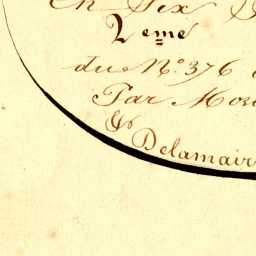 En Six
2eme
du No. 376
Par
&
Delamair